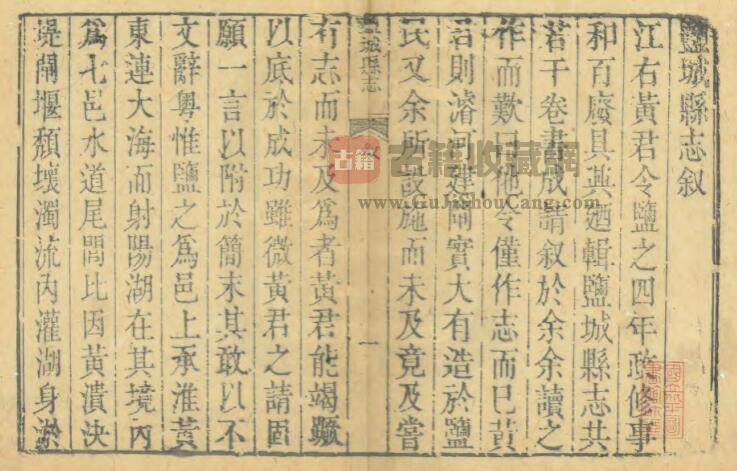 鹽城縣志叙
江右黃君令鹽之四年政修事
和百廢具興廼輯鹽城縣志共
若干卷書成請叙於余余讀之
作而歎曰他令僅作志而已黃
君則濬河建閘實大有造於鹽
民又余所設施而未及竟及嘗
鹽城縣志 叙 一
有志而未及爲者黃君能竭蹷
以底於成功雖微黃君之請固
願一言以附於簡末其敢以不
文辭粤惟鹽之爲邑上承淮黃
東連大海而射陽湖在其境內
爲七邑水道尾閭比因黃潰決
堤閘堰頹壞濁流內灌湖身淤
古籍
古籍收藏网
www.GuJiShouCang.com